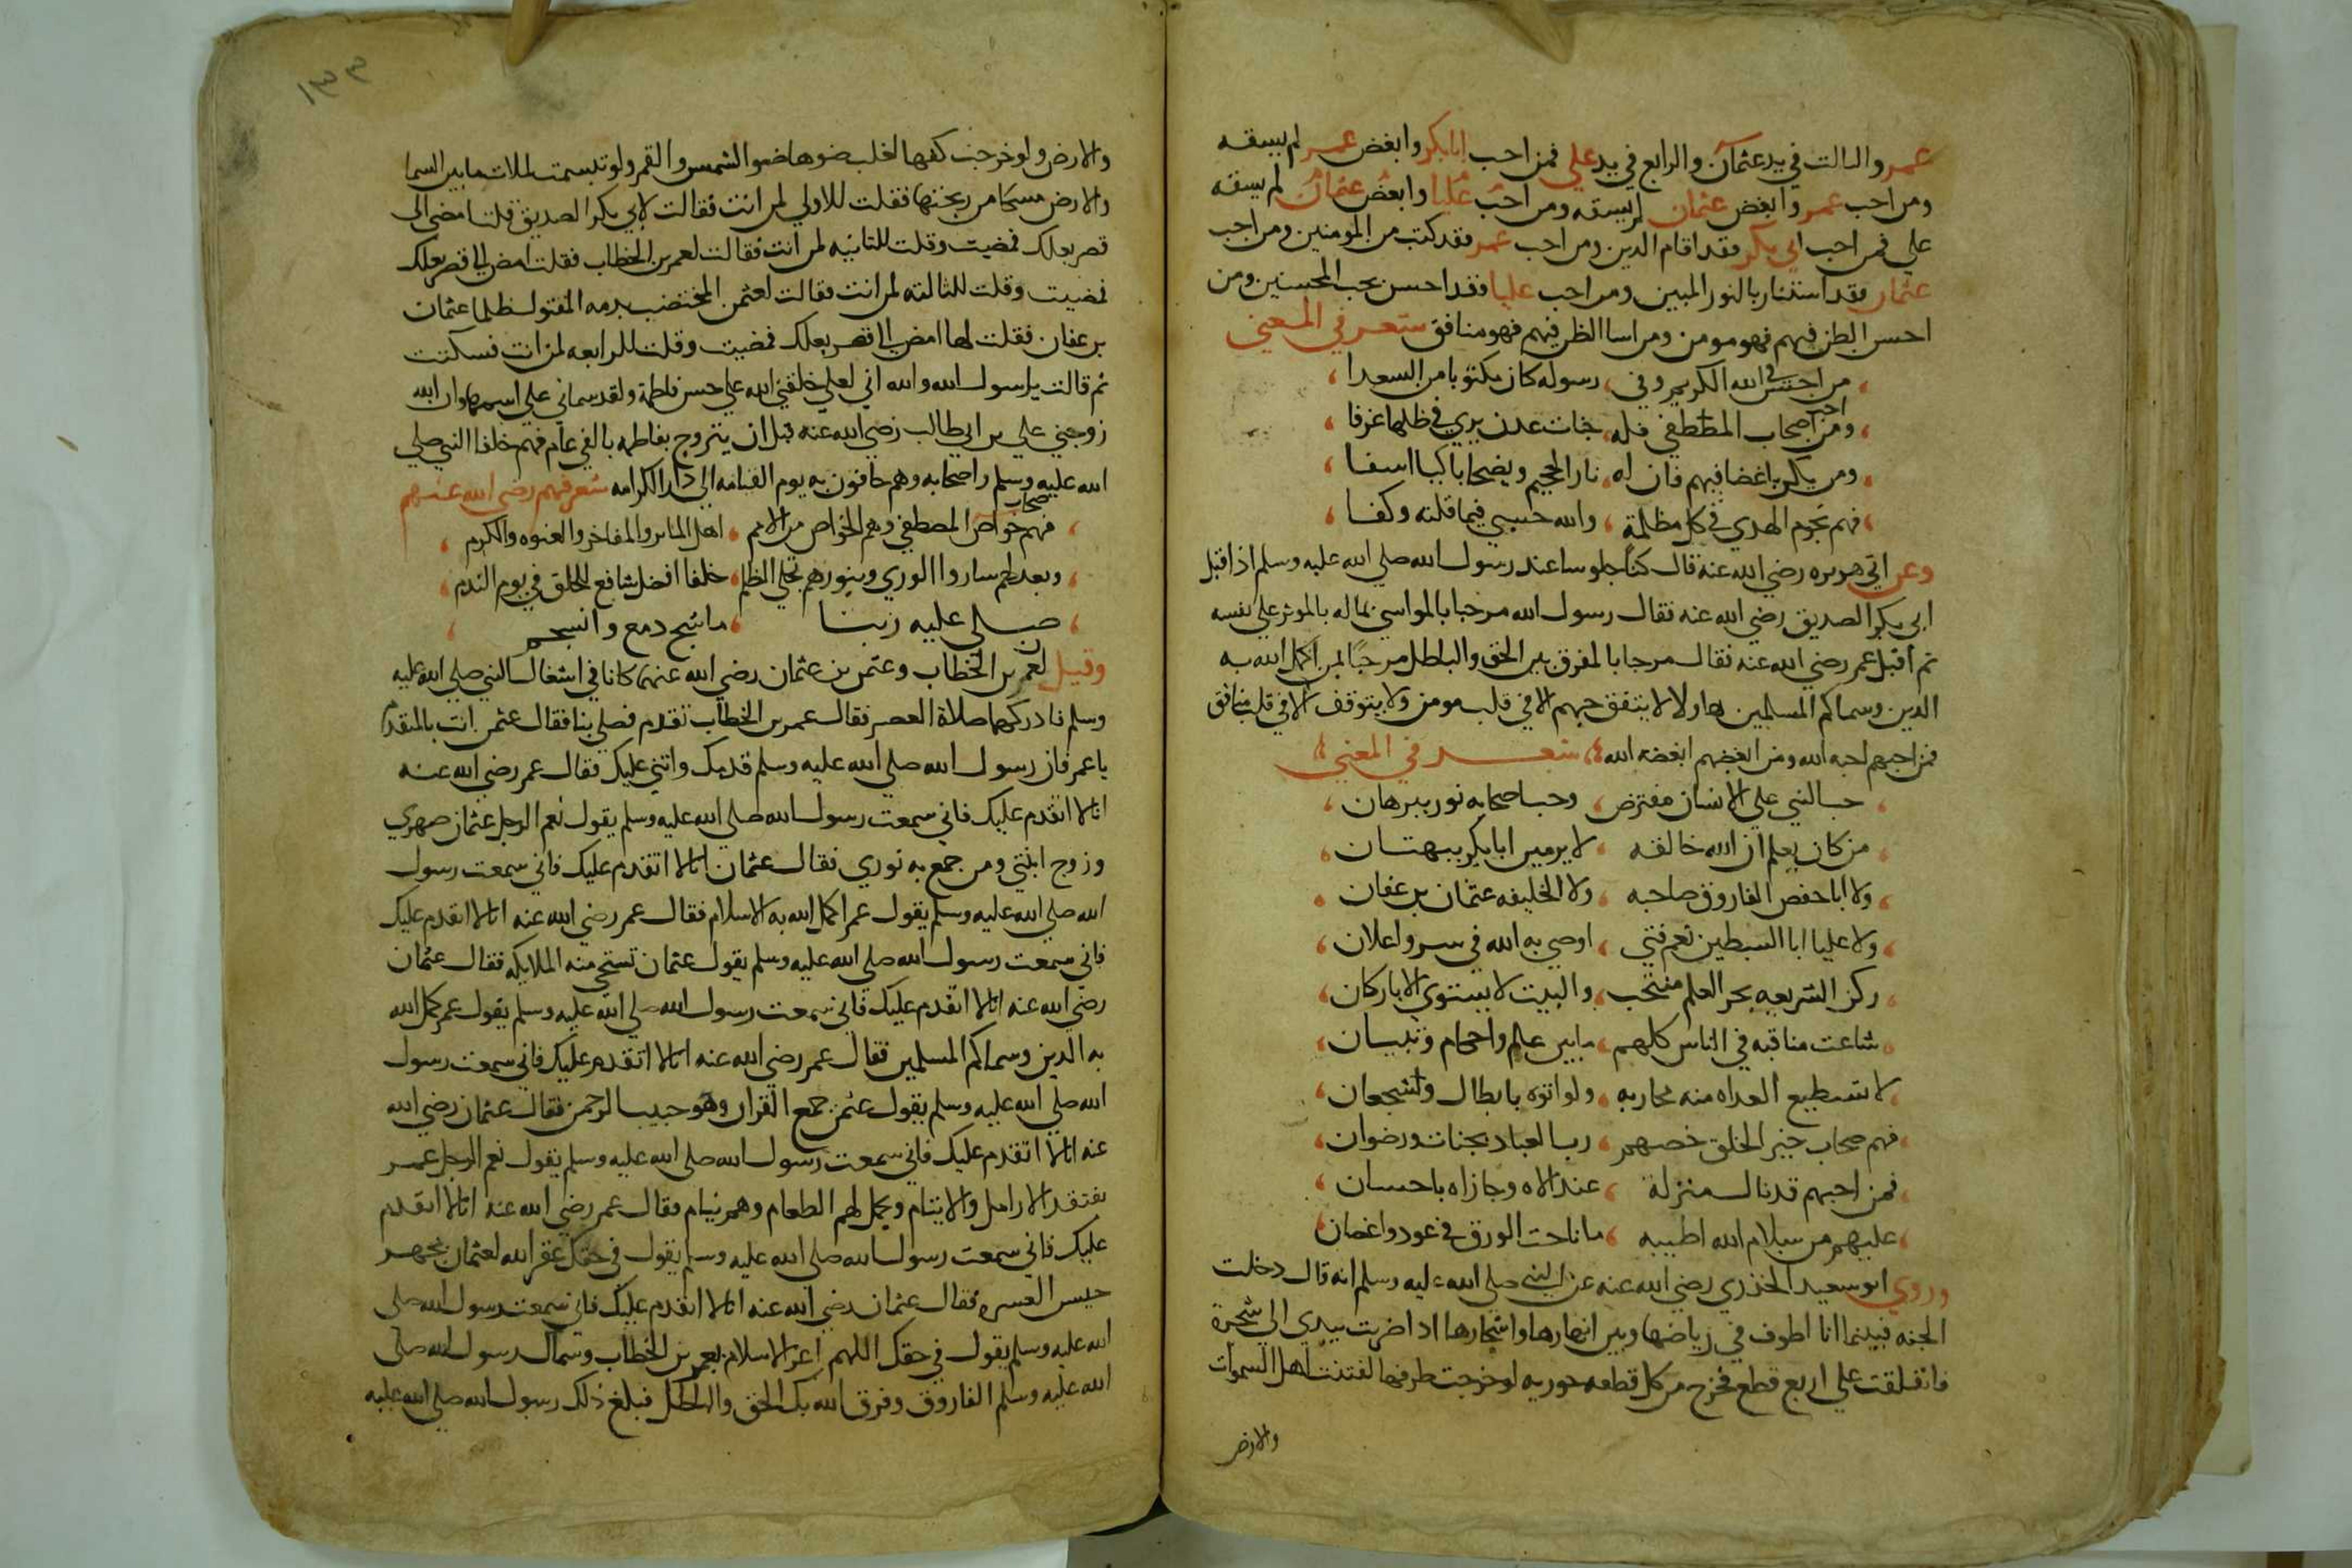 عمر والثالث في يد عثمان والرابع في يد علي فمن احب ابابكر وابغض عمر لم يسقه
ومن احب عمر وابغض عثمان لم يسقه ومن احب عليا وابغض عثمان لم يسقه
علي فمن احب ابي بكر فقد اقام الدين ومن احب عمر فقد كتب من المومنين ومن احب
عثمان فقد استنار بالنور المبين ومن احب عليا فقد احسن يحب المحسنين ومن
احسن الظن فيهم فهو مومن ومن اسا الظن فيهم فهو منافق شعر في المعني
من احب في الله الكريم وفي رسوله كان مكتوبا من السعدا
ومن احب اصحاب المصطفي فله جنات عدن يري في ظلها غرفا
ومن يكن باغضا فيهم فان له نار الجحيم ويضحا باكيا اسفا
فهم نجوم الهدي في كل مظلمة والله حسبي فيما قلته وكفا
وعن ابي هريره رضي الله عنه قال كنا جلوسا عند رسول الله صلي الله عليه وسلم اذ اقبل
ابي بكر الصديق رضي الله عنه فقال رسول الله مرحبا بالمواسي بماله بالموثر علي نفسه
ثم اقبل عمر رضي الله عنه فقال مرحبا بالمفرق بين الحق والباطل مرحبا بمن اكمل الله به
الدين وسماكم المسلمين هاولا لا يتفق حبهم الا في قلب مومن ولا يتوقف الا في قلب منافق
فمن احبهم احبه الله ومن ابغضهم ابغضه الله شعر في المعني
حب النبي علي الانسان مفترض وحب اصحابه نور ببرهان
من كان يعلم ان الله خالقه لا يرمين ابابكر ببهتان
ولا ابا حفص الفاروق صاحبه ولا الخليفه عثمان بن عفان
ولا عليا ابا السبطين نعم فتي اوصي به الله في سر واعلان
ركن الشريعه بحر العلم منتخب والبيت لا يستوي الا باركان
شاعت مناقبه في الناس كلهم مابين علم واحكام وتبيان
لا تستطيع العداه منه محاربه ولو اتوه بابطال وشجعان
فهم صحاب خير الخلق خصهم رب العباد بجنات ورضوان
فمن احبهم قد نال منزلة عند الاله وجازاه باحسان
عليهم من سلام الله اطيبه ما ناحت الورق في عود واغصان
وروي ابو سعيد الخذري رضي الله عنه عن النبي صلي الله عليه وسلم انه قال دخلت
الجنه فبينما انا اطوف في رياضها وبين انهارها واشجارها اذ اضربت بيدي الي شجرة
فانفلقت علي اربع قطع فخرج من كل قطعه حوريه لو خرجت طرفها لفتنت اهل السموات
والارض
١٣٣
والارض ولو خرجت كفها لغلب ضوها ضوا الشمس والقمر ولو تبسمت لملات مابين السما
والارض مسكا من ريحتها فقلت للاولي لمن انت فقالت لابي بكر الصديق قلت امضي الي
قصر بعلك فمضيت وقلت للثانيه لمن انت فقالت لعمر بن الخطاب فقلت امضي الي قصر بعلك
فمضيت وقلت للثالثه لمن انت فقالت لعثمن المختضب بدمه المقتول ظلما عثمان
بن عفان فقلت لها امضي الي قصر بعلك فمضيت وقلت للرابعه لمن انت فسكتت
ثم قالت يا رسول الله والله اني لعلي خلقني الله علي حسن فاطمة ولقد سماني علي اسمها وان الله
زوجني علي بن ابي طالب رضي الله عنه قبل ان يتزوج بفاطمه بالفي عام فهم خلفا النبي صلي
الله عليه وسلم واصحابه وهم حافون به يوم القيامه الي دار الكرامه شعر فيهم رضي الله عنهم
فهم خواص صحاب المصطفي وهم الخواص من الامم اهل الماثر والمفاخر والفتوه والكرم
وبعدلهم ساروا الوري وبنورهم تجلي الظلم خلفا افضل شافع للخلق في يوم الندم
صلي عليه ربنا ما سح دمع وانسجم
وقيل ان لعمر بن الخطاب وعثمن بن عثمان رضي الله عنهما كانا في اشغال النبي صلي الله عليه
وسلم فادركهما صلاة العصر فقال عمر بن الخطاب تقدم فصلي بنا فقال عثمن انت بالمتقدم
يا عمر فان رسول الله صلي الله عليه وسلم قدمك واثني عليك فقال عمر رضي الله عنه
انا لا اتقدم عليك فاني سمعت رسول الله صلي الله عليه وسلم يقول نعم الرجل عثمان صهري
وزوج ابنتي ومن جمع به نوري فقال عثمان انا لا اتقدم عليك فاني سمعت رسول
الله صلي الله عليه وسلم يقول عمر اكمل الله به الاسلام فقال عمر رضي الله عنه انا لا اتقدم عليك
فاني سمعت رسول الله صلي الله عليه وسلم يقول عثمان تستحي منه الملايكه فقال عثمان
رضي الله عنه انا لا اتقدم عليك فاني سمعت رسول الله صلي الله عليه وسلم يقول عمر كمل الله
به الدين وسماكم المسلمين فقال عمر رضي الله عنه انا لا اتقدم عليك فاني سمعت رسول
الله صلي الله عليه وسلم يقول عثمن جمع القران وهو حبيب الرحمن فقال عثمان رضي الله
عنه انا لا اتقدم عليك فاني سمعت رسول الله صلي الله عليه وسلم يقول نعم الرجل عمر
يفتقد الارامل والايتام ويحمل لهم الطعام وهم نيام فقال عمر رضي الله عنه انا لا اتقدم
عليك فاني سمعت رسول الله صلي الله عليه وسلم يقول في حقك غفر الله لعثمان مجهز
جيس العسره فقال عثمان رضي الله عنه انا لا اتقدم عليك فاني سمعت رسول الله صلي
الله عليه وسلم يقول في حقك اللهم اعز الاسلام بعمر بن الخطاب وسماك رسول الله صلي
الله عليه وسلم الفاروق وفرق الله بك الحق والباطل فبلغ ذلك رسول الله صلي الله عليه